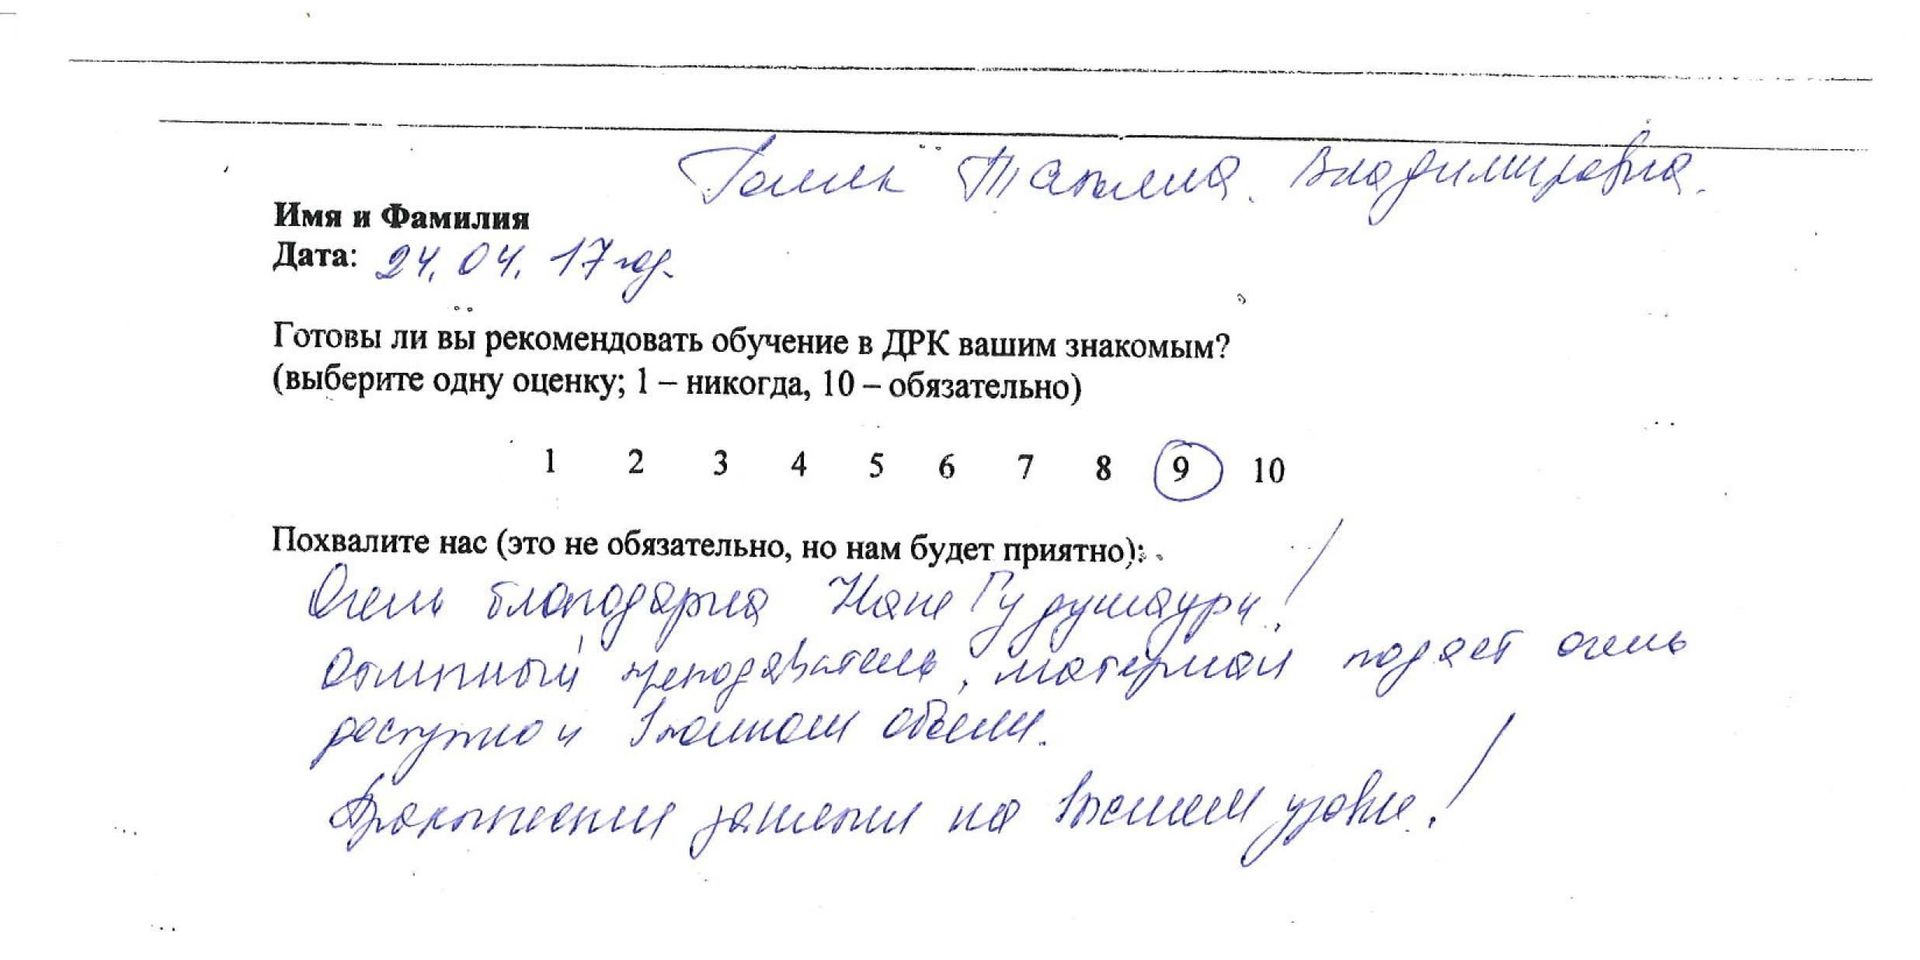 Татьяна Владимировна.
Имя и Фамилия
Дата: 24.04.17 год.
Готовы ли вы рекомендовать обучение в ДРК вашим знакомым?
(выберите одну оценку; 1 – никогда, 10 – обязательно)
1 2 3 4 5 6 7 8 9 10
Похвалите нас (это не обязательно, но нам будет приятно):
Очень благодарна Нане Гудушаури!
Отличный преподаватель, материал подает очень
доступно и в полном объеме.
Практические занятия на высшем уровне!